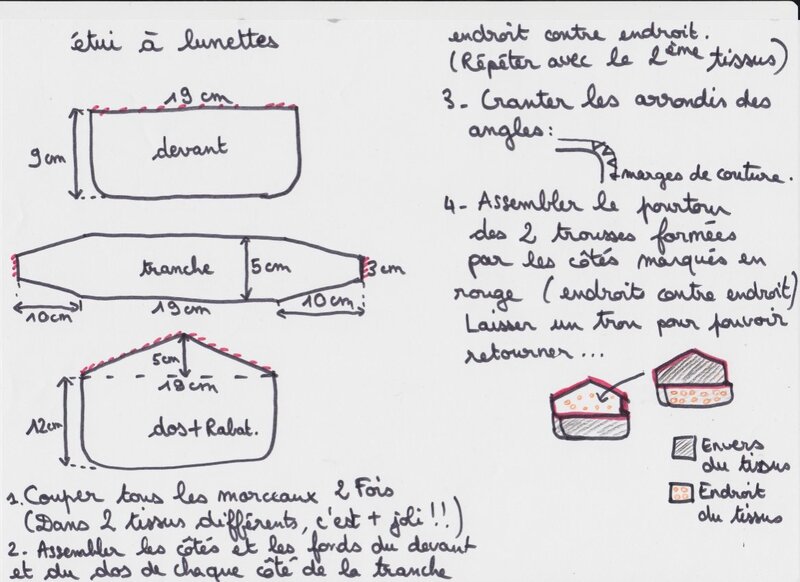 étui à lunettes
19 cm
9 cm
devant
tranche
5 cm
3 cm
10 cm
19 cm
10 cm
5 cm
18 cm
12 cm
dos + Rabat.
1. Couper tous les morceaux 2 Fois
(Dans 2 tissus différents, c'est + joli !!)
2. Assembler les côtés et les fonds du devant
et du dos de chaque côté de la tranche
endroit contre endroit.
(Répéter avec le 2ème tissus)
3 - Cranter les arrondis des
angles :
marges de couture.
4 - Assembler le pourtour
des 2 trousses formées
par les côtés marqués en
rouge (endroits contre endroit)
Laisser un trou pour pouvoir
retourner ...
Envers
du tissus
Endroit
du tissus